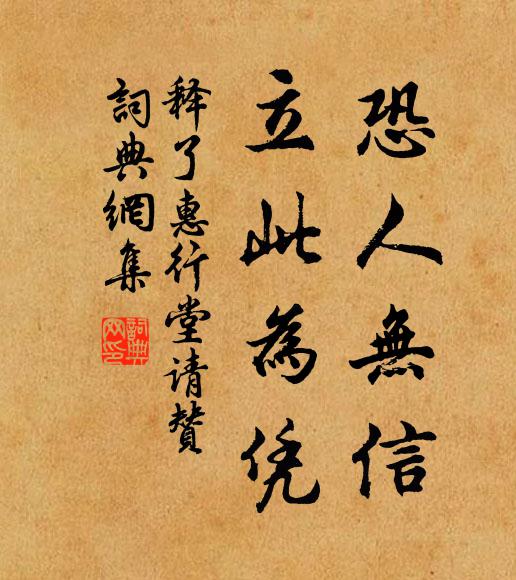 恐人無信
立此為凭
释了惠行堂请贊
詞典網集
詞典
双印